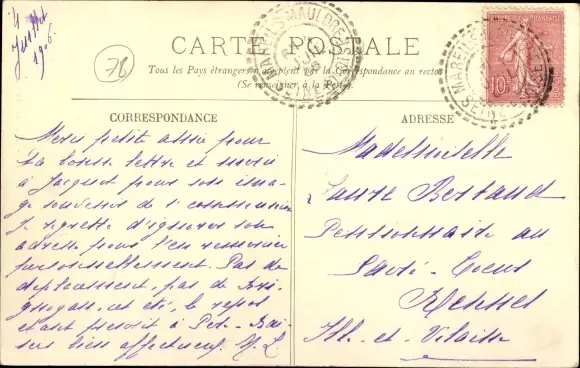 4
Juillet
1906.
78
CARTE POSTALE
Tous les Pays étrangers n'acceptent pas la Correspondance au recto
(Se renseigner à la Poste)
MAREUIL S MAULDRE
SEINE-ET-OISE
RÉPUBLIQUE FRANÇAISE
10
CORRESPONDANCE
ADRESSE
Merci petite amie pour
ta bonne lettre et merci
à Jacques pour son ima-
ge souvenir de 1e communion
Je regrette d'ignorer son
adresse pour l'en remercier
personnellement. Pas de
déplacement, pas de
cet été, le repos
étant prescrit à
bien affectueux. M. L.
Mademoiselle
Bertrand
Pensionnaire au
Sacré-Coeur
Rennes
Ille-et-Vilaine